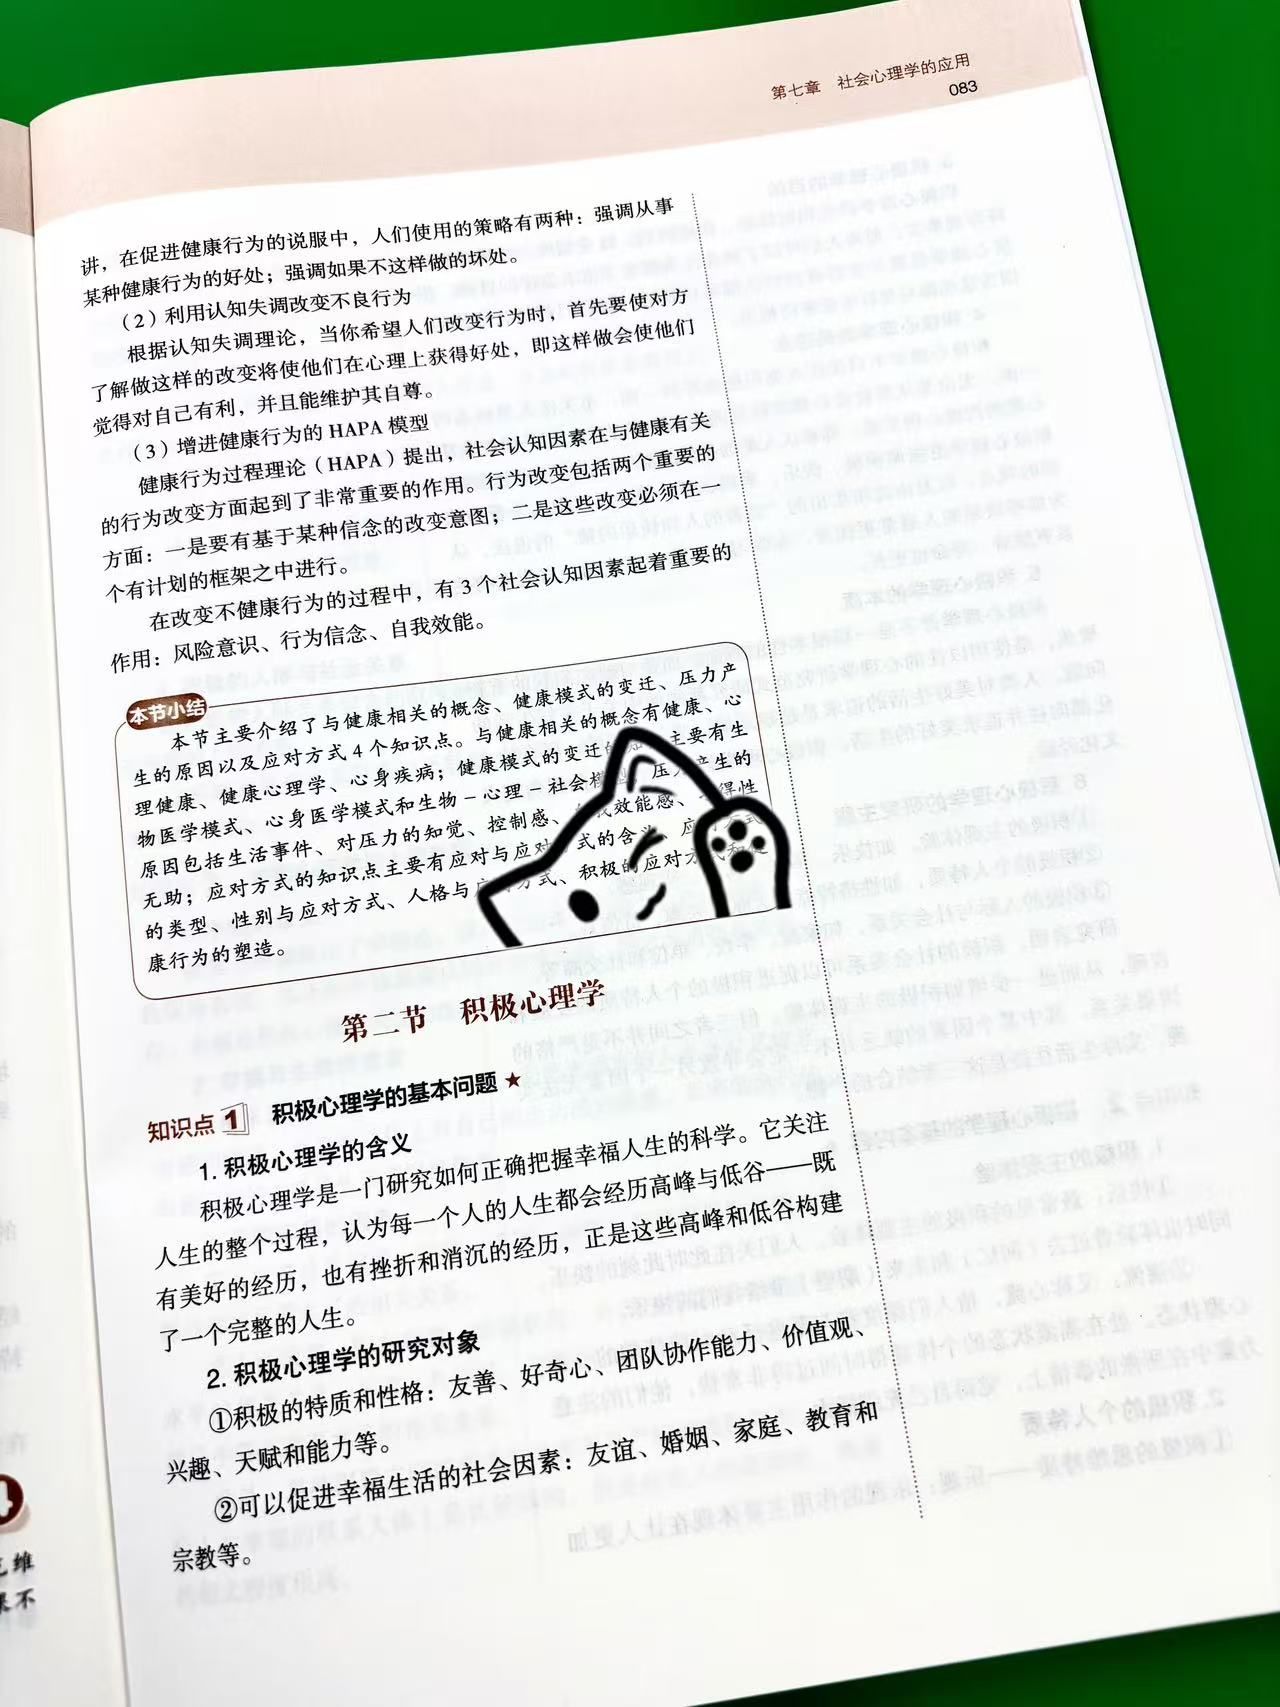 第七章 社会心理学的应用
083
讲，在促进健康行为的说服中，人们使用的策略有两种：强调从事
某种健康行为的好处；强调如果不这样做的坏处。
（2）利用认知失调改变不良行为
根据认知失调理论，当你希望人们改变行为时，首先要使对方
了解做这样的改变将使他们在心理上获得好处，即这样做会使他们
觉得对自己有利，并且能维护其自尊。
（3）增进健康行为的 HAPA 模型
健康行为过程理论（HAPA）提出，社会认知因素在与健康有关
的行为改变方面起到了非常重要的作用。行为改变包括两个重要的
方面：一是要有基于某种信念的改变意图；二是这些改变必须在一
个有计划的框架之中进行。
在改变不健康行为的过程中，有 3 个社会认知因素起着重要的
作用：风险意识、行为信念、自我效能。
本节小结
本节主要介绍了与健康相关的概念、健康模式的变迁、压力产
生的原因以及应对方式 4 个知识点。与健康相关的概念有健康、心
理健康、健康心理学、心身疾病；健康模式的变迁的 主要有生
物医学模式、心身医学模式和生物－心理－社会模 压力产生的
原因包括生活事件、对压力的知觉、控制感、 我效能感、 得性
无助；应对方式的知识点主要有应对与应对 式的含义、应 方式
的类型、性别与应对方式、人格与 对方式、积极的应对方式和
康行为的塑造。
第二节 积极心理学
知识点 1 积极心理学的基本问题 ★
1. 积极心理学的含义
积极心理学是一门研究如何正确把握幸福人生的科学。它关注
人生的整个过程，认为每一个人的人生都会经历高峰与低谷——既
有美好的经历，也有挫折和消沉的经历，正是这些高峰和低谷构建
了一个完整的人生。
2. 积极心理学的研究对象
①积极的特质和性格：友善、好奇心、团队协作能力、价值观、
兴趣、天赋和能力等。
②可以促进幸福生活的社会因素：友谊、婚姻、家庭、教育和
宗教等。